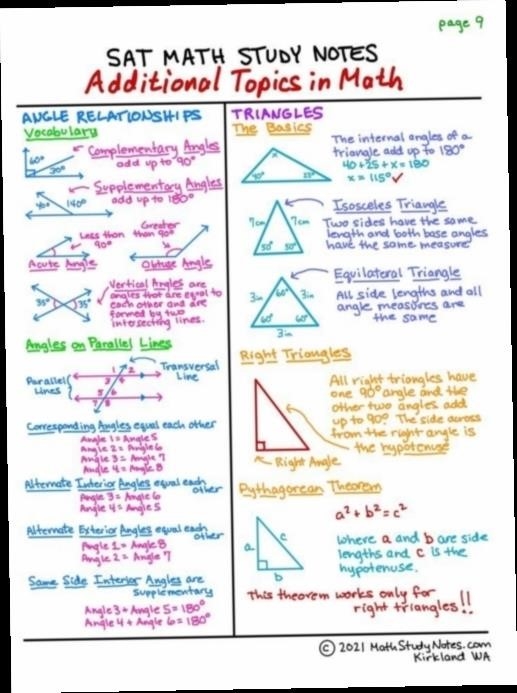 page 9
SAT MATH STUDY NOTES
Additional Topics in Math
ANGLE RELATIONSHIPS
Vocabulary
60°
30°
Complementary Angles
add up to 90°
Supplementary Angles
add up to 180°
40°
140°
Less than
90°
Acute Angle
Greater
than 90°
Obtuse Angle
35°
35°
Vertical Angles are
angles that are equal to
each other and are
formed by two
intersecting lines.
Angles on Parallel Lines
Parallel
Lines
1 2
3 4
5 6
7 8
Transversal
Line
Corresponding Angles equal each other
Angle 1 = Angle 5
Angle 2 = Angle 6
Angle 3 = Angle 7
Angle 4 = Angle 8
Alternate Interior Angles equal each
other
Angle 3 = Angle 6
Angle 4 = Angle 5
Alternate Exterior Angles equal each
other
Angle 1 = Angle 8
Angle 2 = Angle 7
Same Side Interior Angles are
Supplementary
Angle 3 + Angle 5 = 180°
Angle 4 + Angle 6 = 180°
TRIANGLES
The Basics
x
40°
The internal angles of a
triangle add up to 180°
40+25+x=180
x = 115° ✓
7cm
7cm
50°
50°
Isosceles Triangle
Two sides have the same
length and both base angles
have the same measure
3in
3in
60°
60°
60°
3in
Equilateral Triangle
All side lengths and all
angle measures are
the same
Right Triangles
All right triangles have
one 90° angle and the
other two angles add
up to 90°. The side across
from the right angle is
the hypotenuse
Right Angle
Pythagorean Theorem
a
c
b
a² + b² = c²
where a and b are side
lengths and c is the
hypotenuse.
This theorem works only for
right triangles!!
© 2021 MathStudyNotes.com
Kirkland WA